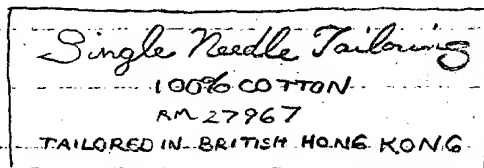 Single Needle Tailoring
100% COTTON
RM 27967
TAILORED IN BRITISH HONG KONG